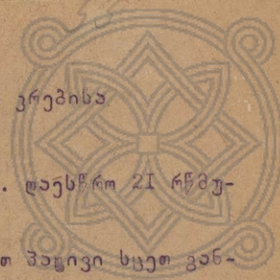 კრებისა
. დაესწრო 21 რწმუ-
თ პატივი სცეთ გან-